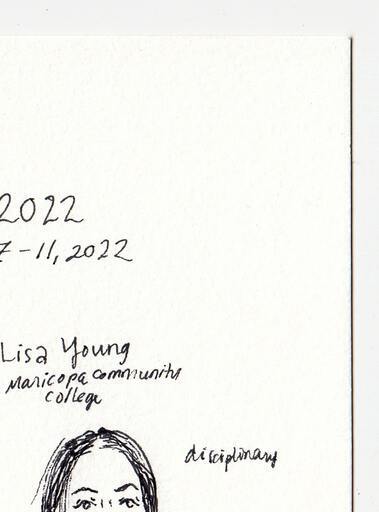 2022
7-11, 2022
Lisa Young
Maricopa community
college
disciplinary